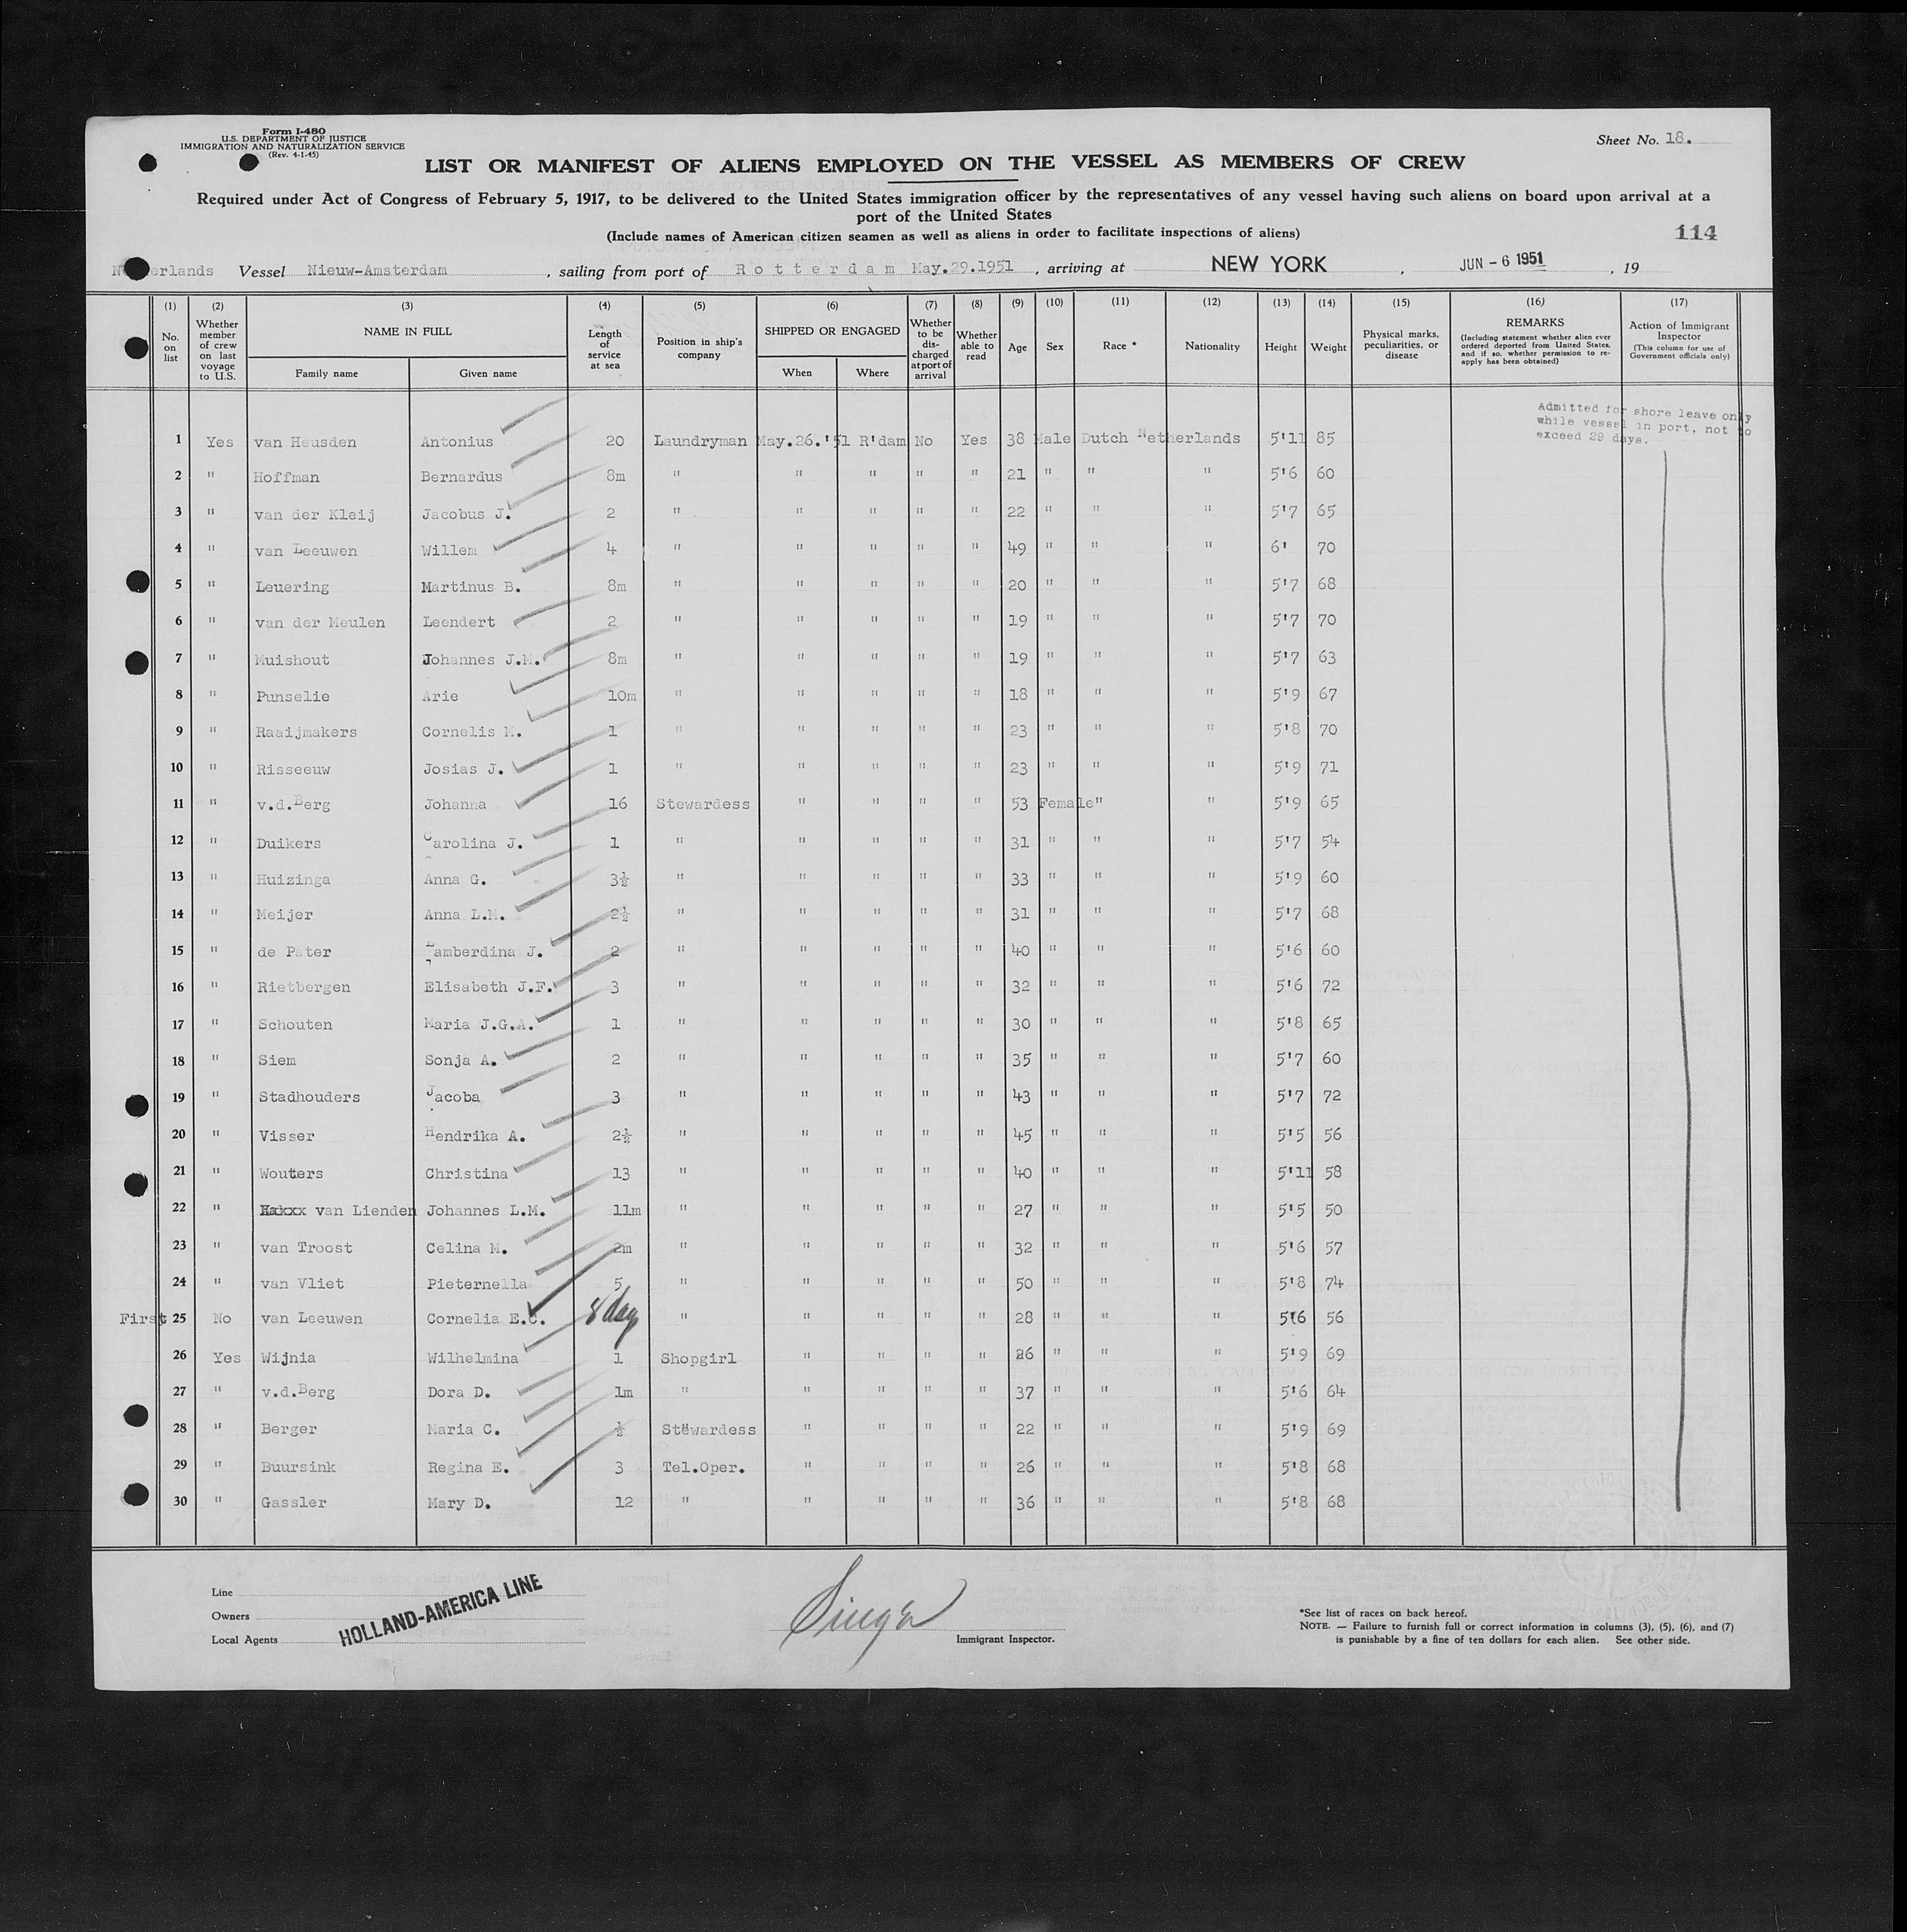 Form I-480
U.S. DEPARTMENT OF JUSTICE
IMMIGRATION AND NATURALIZATION SERVICE
(Rev. 4-1-45)
Sheet No. 18.
LIST OR MANIFEST OF ALIENS EMPLOYED ON THE VESSEL AS MEMBERS OF CREW
Required under Act of Congress of February 5, 1917, to be delivered to the United States immigration officer by the representatives of any vessel having such aliens on board upon arrival at a
port of the United States
(Include names of American citizen seamen as well as aliens in order to facilitate inspections of aliens)
114
Vessel Nieuw-Amsterdam, sailing from port of Rotterdam May.29.1951, arriving at NEW YORK, JUN - 6 1951, 19
(1) (2) (3) (4) (5) (6) (7) (8) (9) (10) (11) (12) (13) (14) (15) (16) (17)
No. on list
Whether member of crew on last voyage to U.S.
NAME IN FULL
Family name Given name
Length of service at sea
Position in ship's company
SHIPPED OR ENGAGED
When Where
Whether to be discharged at port of arrival
Whether able to read
Age
Sex
Race *
Nationality
Height
Weight
Physical marks, peculiarities, or disease
REMARKS
(Including statement whether alien ever ordered deported from United States, and if so, whether permission to re-apply has been obtained)
Action of Immigrant Inspector
(This column for use of Government officials only)
Admitted for shore leave only
while vessel in port, not to
exceed 29 days.
1 Yes van Heusden Antonius 20 Laundryman May.26.'51 R'dam No Yes 38 Male Dutch Netherlands 5'11 85
2 " Hoffman Bernardus 8m " " " " " 21 " " " 5'6 60
3 " van der Kleij Jacobus J. 2 " " " " " 22 " " " 5'7 65
4 " van Leeuwen Willem 4 " " " " " 49 " " " 6' 70
5 " Leuering Martinus B. 8m " " " " " 20 " " " 5'7 68
6 " van der Meulen Leendert 2 " " " " " 19 " " " 5'7 70
7 " Muishout Johannes J.M. 8m " " " " " 19 " " " 5'7 63
8 " Punselie Arie 10m " " " " " 18 " " " 5'9 67
9 " Raaijmakers Cornelis M. 1 " " " " " 23 " " " 5'8 70
10 " Risseeuw Josias J. 1 " " " " " 23 " " " 5'9 71
11 " v.d.Berg Johanna 16 Stewardess " " " " 53 Female " " 5'9 65
12 " Duikers Carolina J. 1 " " " " " 31 " " " 5'7 54
13 " Huizinga Anna G. 3½ " " " " " 33 " " " 5'9 60
14 " Meijer Anna L.M. 2½ " " " " " 31 " " " 5'7 68
15 " de Pater Lamberdina J. 2 " " " " " 40 " " " 5'6 60
16 " Rietbergen Elisabeth J.F. 3 " " " " " 32 " " " 5'6 72
17 " Schouten Maria J.G.A. 1 " " " " " 30 " " " 5'8 65
18 " Siem Sonja A. 2 " " " " " 35 " " " 5'7 60
19 " Stadhouders Jacoba 3 " " " " " 43 " " " 5'7 72
20 " Visser Hendrika A. 2½ " " " " " 45 " " " 5'5 56
21 " Wouters Christina 13 " " " " " 40 " " " 5'11 58
22 " van Lienden Johannes L.M. 11m " " " " " 27 " " " 5'5 50
23 " van Troost Celina M. 2m " " " " " 32 " " " 5'6 57
24 " van Vliet Pieternella 5 " " " " " 50 " " " 5'8 74
First 25 No van Leeuwen Cornelia E.C. 8 day " " " " " 28 " " " 5'6 56
26 Yes Wijnia Wilhelmina 1 Shopgirl " " " " 26 " " " 5'9 69
27 " v.d.Berg Dora D. 1m " " " " " 37 " " " 5'6 64
28 " Berger Maria C. ½ Stewardess " " " " 22 " " " 5'9 69
29 " Buursink Regina E. 3 Tel.Oper. " " " " 26 " " " 5'8 68
30 " Gassler Mary D. 12 " " " " " 36 " " " 5'8 68
Line
Owners
Local Agents
HOLLAND-AMERICA LINE
Immigrant Inspector.
*See list of races on back hereof.
NOTE. — Failure to furnish full or correct information in columns (3), (5), (6), and (7)
is punishable by a fine of ten dollars for each alien. See other side.